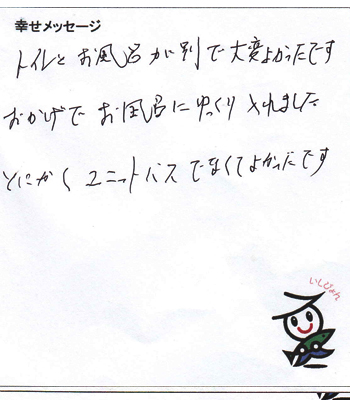 幸せメッセージ
トイレとお風呂が別で大変よかったです
おかげでお風呂にゆっくり入れました
とにかくユニットバスでなくてよかったです
いしぴょん